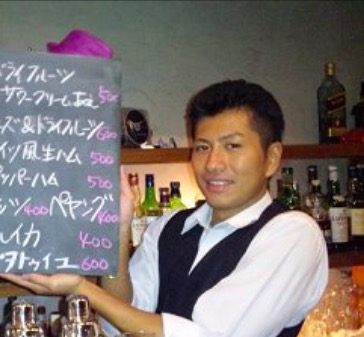 ドライフルーツ
サワークリームあえ 500
ズ&ドライフルーツ 600
イツ風生ハム 500
ッパーハム 500
ツ 400 ペヤング 400
レイカ 400
タトゥイユ 600